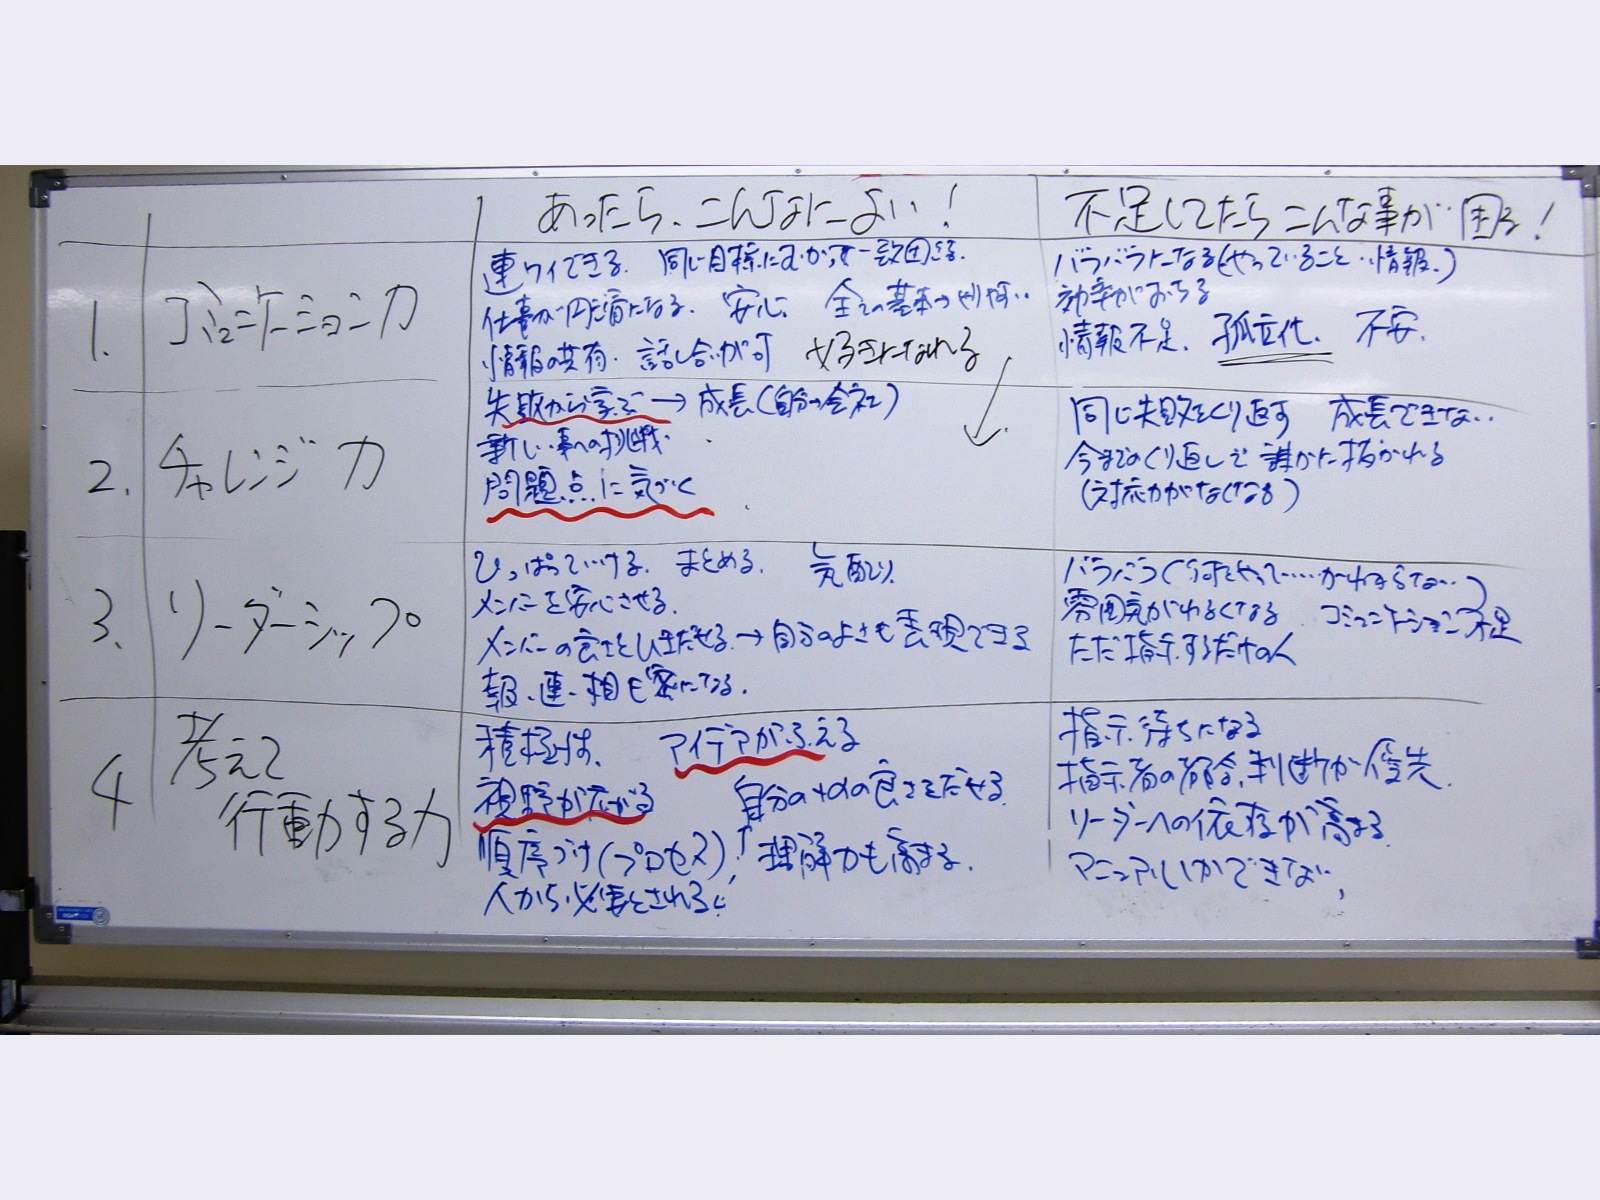 あったら、こんなによい!
不足してたらこんな事が困る!
1. コミュニケーション力
連ケイできる。 同じ目標にむかって一致団結。
仕事が円滑になる。 安心 全ての基本
情報の共有. 話し合いが可 好きになれる
バラバラになる(やっていること・情報。)
効率がおちる
情報不足、 孤立化、 不安.
2. チャレンジ力
失敗から学ぶ → 成長(自分・会社)
新しい事への挑戦
問題点に気づく
同じ失敗をくり返す 成長できない
今までのくり返しで誰かに抜かれる
(対応力がなくなる)
3. リーダーシップ
ひっぱっていける。 まとめる。 気配り
メンバーを安心させる。
メンバーの良さをひきだせる → 自分のよさも表現できる
報、連、相も密になる.
バラバラ(何をやって……かわからない)
雰囲気がわるくなる コミュニケーション不足
ただ指示するだけの人
4 考えて
行動する力
積極性、 アイデアがふえる
視野が広がる 自分の+αの良さをだせる
順序づけ(プロセス)! 理解力も高まる.
人から必要とされる
指示待ちになる
指示者の都合、判断が優先.
リーダーへの依存が高まる
マニュアルしかできない